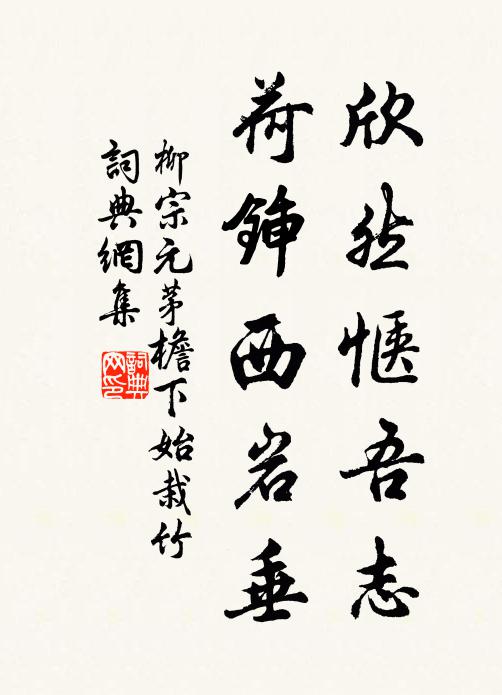 欣然愜吾志
荷鍤西岩垂
柳宗元茅檐下始栽竹
詞典網集
詞典网印